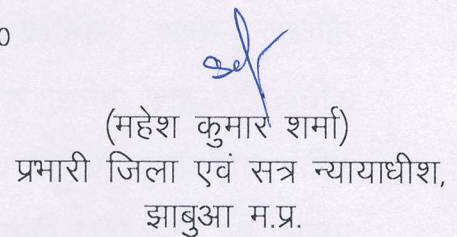 0
(महेश कुमार शर्मा)
प्रभारी जिला एवं सत्र न्यायाधीश,
झाबुआ म.प्र.